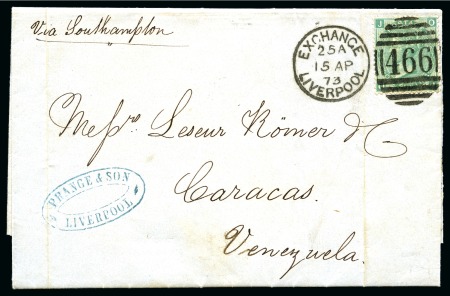 Via Southampton
EXCHANGE
25A
15 AP
73
LIVERPOOL
466
J O
Messrs Leseur Römer & Co
PRANGE & SON
LIVERPOOL
Caracas.
Venezuela.